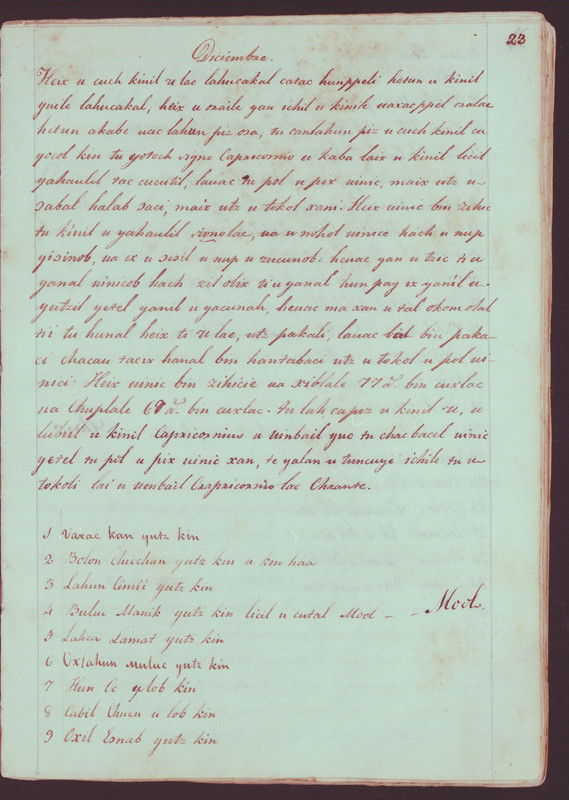 23
Diciembre.
Heix u cuch kinil u lae lahucakal catac hunppeli hetun u kinil
yuele lahucakal, heix u oraile yan ichil u kinile uaxacppel oralae
hetun akabe uac lahun piz ora, tu canlahun piz u cuch kinil cu
yocol kin tu yotoch signo Capricornio u kaba laix u kinil licil
yahaulil tac cucutil, lauac tu pol u pix uinic, maix utz u-
sabal halab saci, maix utz u tokol xani. Heix uinic bin zihic
tu kinil u yahaulil signolae, ua u nohol uinice hach u nup
yisinob, ua ix u sucil u nup u zucunob: heuac yan u tzic ti u
yanal uinicob hach zil otix ti u yanal hun pay ix yanil u-
yutzil yetel yanil u yacunah, heuac ma xan u tal okom olal
ti i tu hunal heix ti u lae, utz pakali, lauac bal bin paka-
ci chacau tacix hanal bin hantabaci utz u tokol u pol ui-
nici: Heix uinic bin zihicie ua xiblale 77 a. bin cuxlac
ua Chuplale 67 a. bin cuxlac. tu lah capiz u kinil u, u
lubul u kinil Capricornius u uinbail yuc tu chac bacel uinic
yetel tu pol u pix uinic xan, te yalan u tuncuye ichile tu u-
tokoli lai u uenbail Capricornio lae Chaante.
1 Vaxac kan yutz kin
2 Bolon Chicchan yutz kin u kin haa
3 Lahun Cimii yutz kin
4 Buluc Manik yutz kin licil u cutal Mool - - Mool.
5 Lahca Lamat yutz kin
6 Oxlahun Muluc yutz kin
7 Hun Oc u lob kin
8 Cabil Chuen u lob kin
9 Oxil Esnab yutz kin